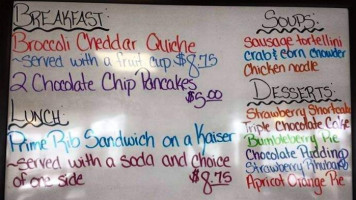 BREAKFAST:
Broccoli Cheddar Quiche
~served with a fruit cup $8.75
2 Chocolate Chip Pancakes
$5.00
LUNCH:
Prime Rib Sandwich on a Kaiser
~served with a soda and choice
of one side $8.75
SOUPS:
sausage tortellini
crab & corn chowder
Chicken noodle
DESSERTS:
Strawberry Shortcake
Triple Chocolate Cake
Bumbleberry Pie
Chocolate Pudding
Strawberry Rhubarb
Apricot Orange Pie